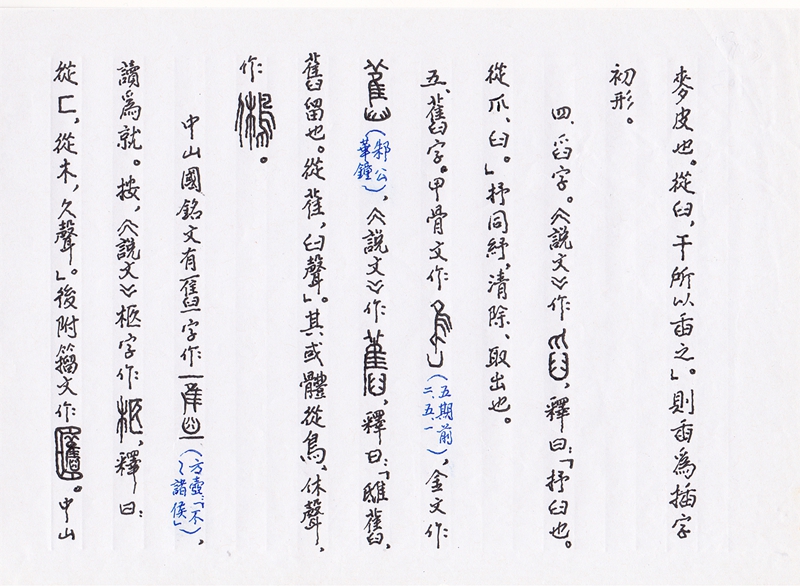 麥皮也。從臼,干所以臿之」。則臿爲插字
初形。
四、舀字。《說文》作,釋曰:「抒臼也。
從爪、臼。」抒同紓,清除、取出也。
五、舊字。甲骨文作(五期前二.五.一),金文作
(邾公華鐘),《說文》作,釋曰:「舊,
舊留也。從萑,臼聲」。其或體從鳥、休聲,
作。
中山國銘文有舊字作(方壺「不~諸侯」),
讀爲就。按,《說文》柩字作,釋曰:
從匚,從木,久聲」。後附籀文作。中山